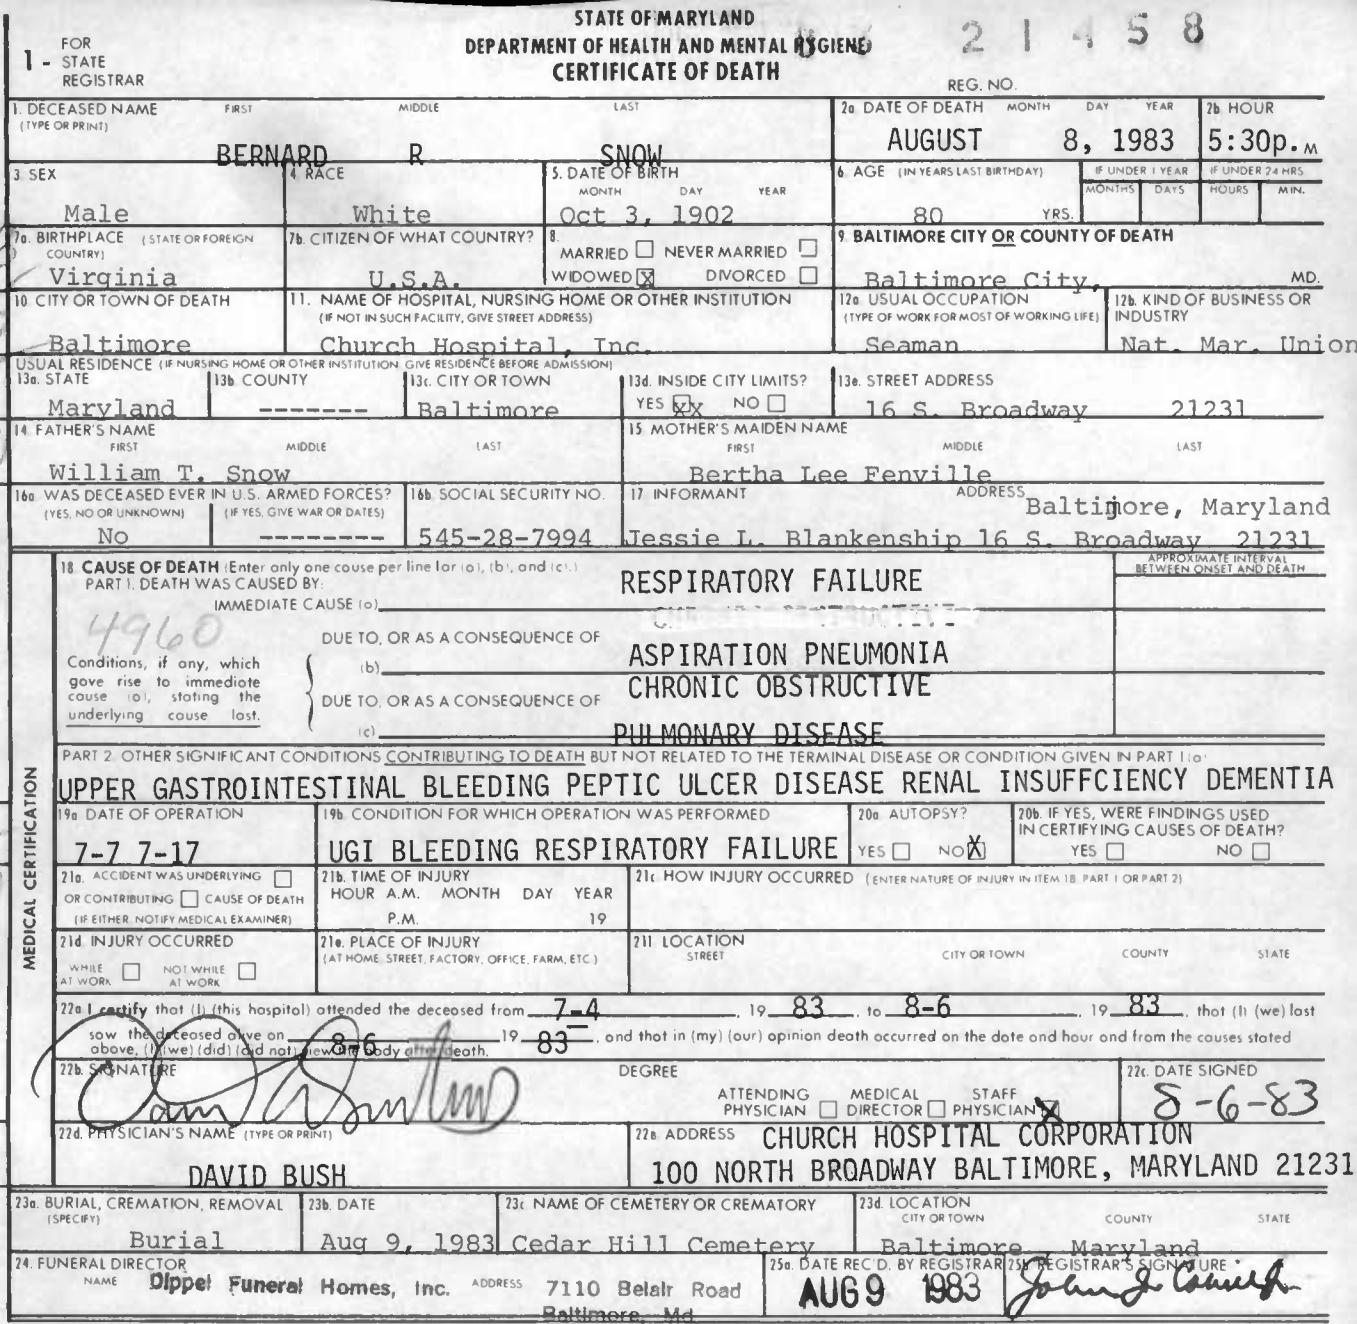 STATE OF MARYLAND
DEPARTMENT OF HEALTH AND MENTAL HYGIENE
CERTIFICATE OF DEATH
1 - FOR STATE REGISTRAR
21458
REG. NO.
1. DECEASED NAME (TYPE OR PRINT) FIRST MIDDLE LAST
BERNARD R SNOW
2a DATE OF DEATH MONTH DAY YEAR
AUGUST 8, 1983
2b HOUR
5:30p.M
3. SEX
Male
4. RACE
White
5. DATE OF BIRTH MONTH DAY YEAR
Oct 3, 1902
6. AGE (IN YEARS LAST BIRTHDAY)
80 YRS.
IF UNDER 1 YEAR MONTHS DAYS
IF UNDER 24 HRS HOURS MIN.
7a. BIRTHPLACE (STATE OR FOREIGN COUNTRY)
Virginia
7b. CITIZEN OF WHAT COUNTRY?
U.S.A.
8. MARRIED NEVER MARRIED
WIDOWED X DIVORCED
9. BALTIMORE CITY OR COUNTY OF DEATH
Baltimore City, MD.
10. CITY OR TOWN OF DEATH
Baltimore
11. NAME OF HOSPITAL, NURSING HOME OR OTHER INSTITUTION
(IF NOT IN SUCH FACILITY, GIVE STREET ADDRESS)
Church Hospital, Inc.
12a. USUAL OCCUPATION
(TYPE OF WORK FOR MOST OF WORKING LIFE)
Seaman
12b. KIND OF BUSINESS OR INDUSTRY
Nat. Mar. Union
USUAL RESIDENCE (IF NURSING HOME OR OTHER INSTITUTION GIVE RESIDENCE BEFORE ADMISSION)
13a. STATE
Maryland
13b. COUNTY
--------
13c. CITY OR TOWN
Baltimore
13d. INSIDE CITY LIMITS?
YES XX NO
13e. STREET ADDRESS
16 S. Broadway 21231
14. FATHER'S NAME
FIRST MIDDLE LAST
William T. Snow
15. MOTHER'S MAIDEN NAME
FIRST MIDDLE LAST
Bertha Lee Fenville
16a WAS DECEASED EVER IN U.S. ARMED FORCES?
(YES, NO OR UNKNOWN) (IF YES, GIVE WAR OR DATES)
No --------
16b. SOCIAL SECURITY NO.
545-28-7994
17. INFORMANT ADDRESS
Baltimore, Maryland
Jessie L. Blankenship 16 S. Broadway 21231
18. CAUSE OF DEATH (Enter only one cause per line for (a), (b), and (c).)
PART 1. DEATH WAS CAUSED BY:
IMMEDIATE CAUSE (a)
RESPIRATORY FAILURE
APPROXIMATE INTERVAL BETWEEN ONSET AND DEATH
4960
Conditions, if any, which
gave rise to immediate
cause (a), stating the
underlying cause last.
DUE TO, OR AS A CONSEQUENCE OF
(b) ASPIRATION PNEUMONIA
DUE TO, OR AS A CONSEQUENCE OF
CHRONIC OBSTRUCTIVE
(c) PULMONARY DISEASE
PART 2. OTHER SIGNIFICANT CONDITIONS CONTRIBUTING TO DEATH BUT NOT RELATED TO THE TERMINAL DISEASE OR CONDITION GIVEN IN PART 1(a)
UPPER GASTROINTESTINAL BLEEDING PEPTIC ULCER DISEASE RENAL INSUFFCIENCY DEMENTIA
MEDICAL CERTIFICATION
19a DATE OF OPERATION
7-7 7-17
19b. CONDITION FOR WHICH OPERATION WAS PERFORMED
UGI BLEEDING RESPIRATORY FAILURE
20a AUTOPSY?
YES NO X
20b. IF YES, WERE FINDINGS USED
IN CERTIFYING CAUSES OF DEATH?
YES NO
21a. ACCIDENT WAS UNDERLYING
OR CONTRIBUTING CAUSE OF DEATH
(IF EITHER NOTIFY MEDICAL EXAMINER)
21b. TIME OF INJURY
HOUR A.M. MONTH DAY YEAR
P.M. 19
21c HOW INJURY OCCURRED (ENTER NATURE OF INJURY IN ITEM 18 PART 1 OR PART 2)
21d. INJURY OCCURRED
WHILE AT WORK NOT WHILE AT WORK
21e. PLACE OF INJURY
(AT HOME, STREET, FACTORY, OFFICE, FARM, ETC.)
21f. LOCATION
STREET CITY OR TOWN COUNTY STATE
22a I certify that (I) (this hospital) attended the deceased from 7-4, 19 83, to 8-6, 19 83, that (I) (we) last
saw the deceased alive on 8-6 19 83, and that in (my) (our) opinion death occurred on the date and hour and from the causes stated
above, (I) (we) (did) (did not) view the body after death.
22b. SIGNATURE
DEGREE
ATTENDING PHYSICIAN MEDICAL DIRECTOR STAFF PHYSICIAN X
22c. DATE SIGNED
8-6-83
22d. PHYSICIAN'S NAME (TYPE OR PRINT)
DAVID BUSH
22e ADDRESS
CHURCH HOSPITAL CORPORATION
100 NORTH BROADWAY BALTIMORE, MARYLAND 21231
23a. BURIAL, CREMATION, REMOVAL (SPECIFY)
Burial
23b. DATE
Aug 9, 1983
23c NAME OF CEMETERY OR CREMATORY
Cedar Hill Cemetery
23d. LOCATION
CITY OR TOWN COUNTY STATE
Baltimore, Maryland
24. FUNERAL DIRECTOR
NAME Dippel Funeral Homes, Inc. ADDRESS 7110 Belair Road
Baltimore, Md.
25a. DATE REC'D. BY REGISTRAR
AUG 9 1983
25b REGISTRAR'S SIGNATURE